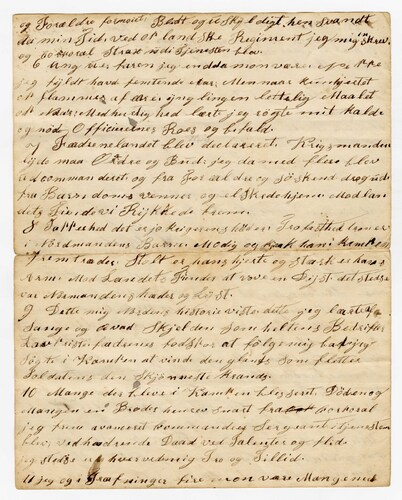 og Foræl dre formoet. Bedt og uskyldigt, hen svandt
da min Tid. ved Opland ske Regiment jeg mig skrev
og korporal strax udi tjenesten blev.
6 Ung u er faren jeg endda mon være
jeg fyldt havd femtende Aar. Men naar kun hjertet
af flammes af ære ynglingen lettelig Maalet
Mod hurdighed lærte jeg søgte mit kald
og nød, Officerernes Roes og bifald.
7 Fædrenelandet blev Krigsmanden
lyde maa Ordre og Bud. jeg da med flere blev
commanderet. og fra Forældre og Søskend drog ud
fra Barndomens venner og elskede hjem Mod lan
dets Fiender vi Rykkede frem.
8 Tapperhed det er jo krigerens Troefasthed troner
i Nordmandens Barm. Modig og kjæk han i Kampen
fremtræder. Stolt er hans hjerte og stærk er hans
Arm. Mod Landets Fiender at vove en Dyst. det stedse
var Normandens hæder og Lyst.
9 Dette mig Nordens historie viste dette jeg lærte af
Sange og Qvad Skjelden som heltenes Bedrifter
fædrenes fodspor at følge mig bad jeg
søgte i Kampen at vinde den glands som fletter
Soldatens den Skjønneste krands.
10 Mange der bleve i Kampen blesseret. Døden og
Mangen en Broder henrev snart fra korporal
jeg frem avanceret commanders Sergeant tjenesten
blev. ved hædrende Daad ved Talenter og flid.
jeg stedse erhvervede mig Tro og Tillid.
11 jeg og i Træfninger fire mon være Mange ned